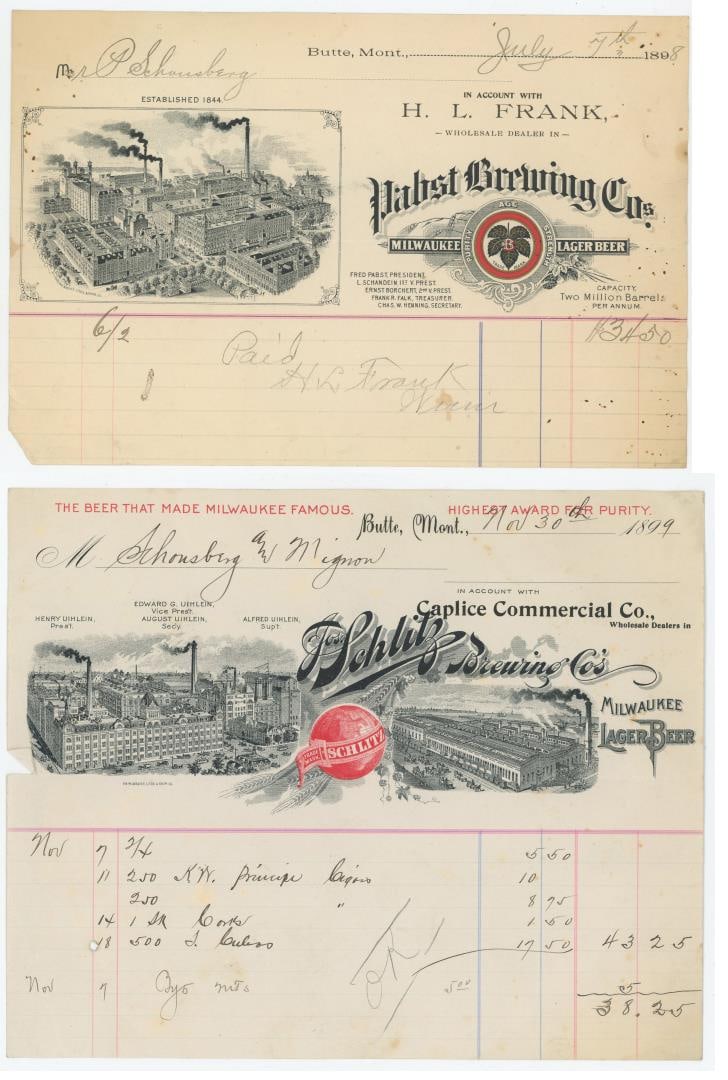 Butte, Mont., July 7th 1898
Mr P Schonsberg
IN ACCOUNT WITH
H. L. FRANK,
- WHOLESALE DEALER IN -
ESTABLISHED 1844.
Pabst Brewing Cos.
PURITY AGE STRENGTH
B
MILWAUKEE LAGER BEER
FRED PABST, PRESIDENT.
L. SCHANDEIN 1ST V. PREST.
ERNST BORCHERT, 2ND V. PREST.
FRANK R. FALK, TREASURER.
CHAS. W. HENNING, SECRETARY.
CAPACITY,
Two Million Barrels
PER ANNUM.
6/2 $34 50
Paid
H L Frank
THE BEER THAT MADE MILWAUKEE FAMOUS. HIGHEST AWARD FOR PURITY.
Butte, Mont., Nov 30th 1899
M Schonsberg & Mignon
IN ACCOUNT WITH
Caplice Commercial Co.,
Wholesale Dealers in
HENRY UIHLEIN,
Prest.
EDWARD G. UIHLEIN,
Vice Prest.
AUGUST UIHLEIN,
Secy.
ALFRED UIHLEIN,
Supt.
Jos. Schlitz Brewing Co's
MILWAUKEE
LAGER BEER
TRADE MARK SCHLITZ
Nov 7 2/4 5 50
11 250 K.W. Principe Cigars 10
250 " 8 75
14 1 Corks 1 50
18 500 17 50 43 25
OK
Nov 7 5.00 5
38.25